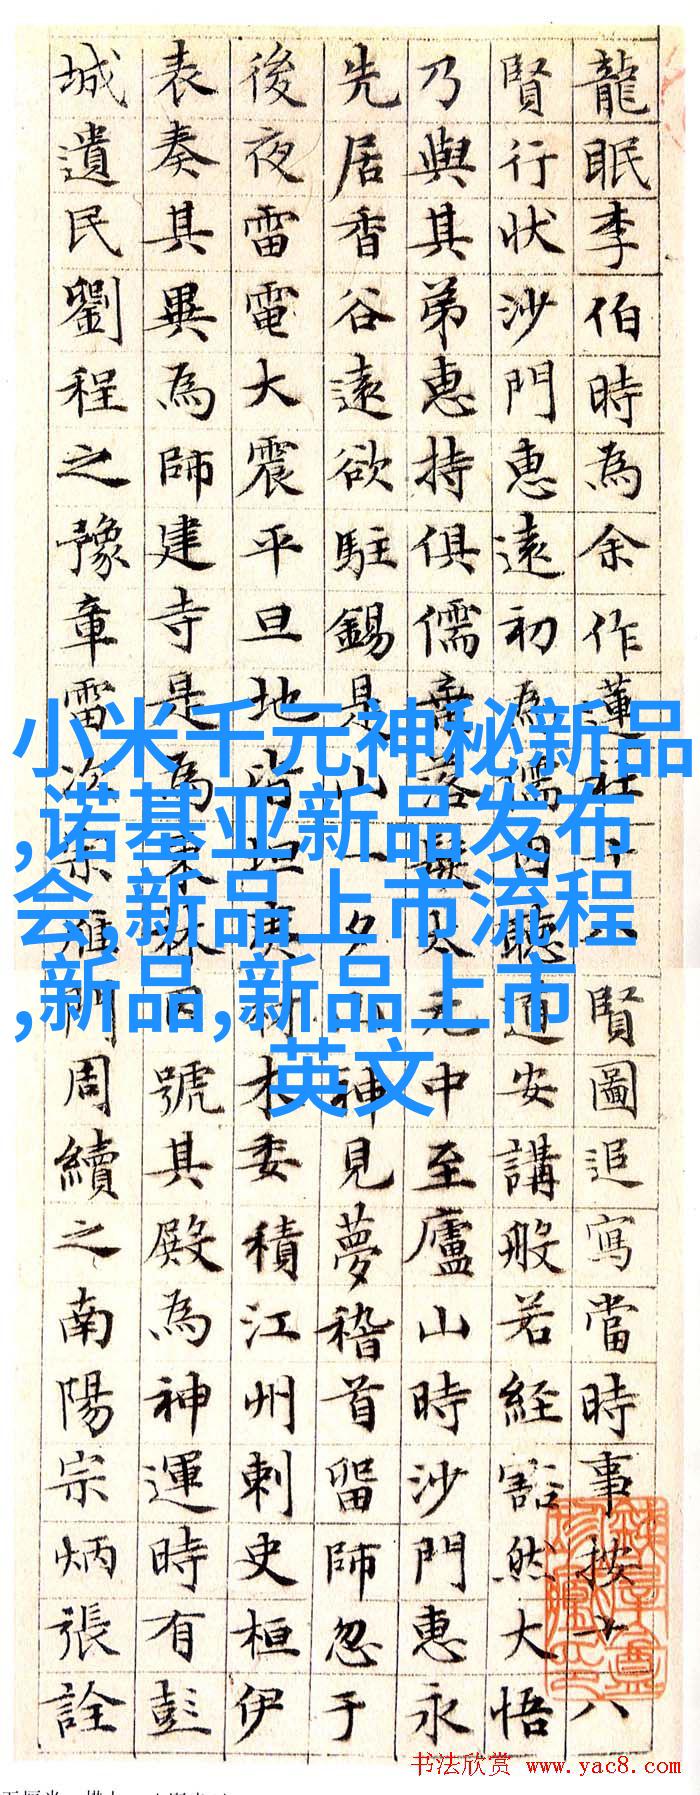 龍眠李伯時為余作蓮社十賢圖追寫當時事按十八
賢行狀沙門惠遠初為儒因聽道安講般若経豁然大悟
乃與其弟惠持俱儒落髮太元中至廬山時沙門惠永
先居香谷遠欲駐錫是山一夕山神見夢稽首留師忽于
後夜雷電大震平旦地皆坦夷材木委積江州刺史桓伊
表奏其異為師建寺是為東林因號其殿為神運時有彭
城遺民劉程之豫章雷次宗雁門周續之南陽宗炳張詮
小米千元神秘新品
,诺基亚新品发布
会,新品上市流程
,新品,新品上市
英文
书法欣赏 www.yac8.com